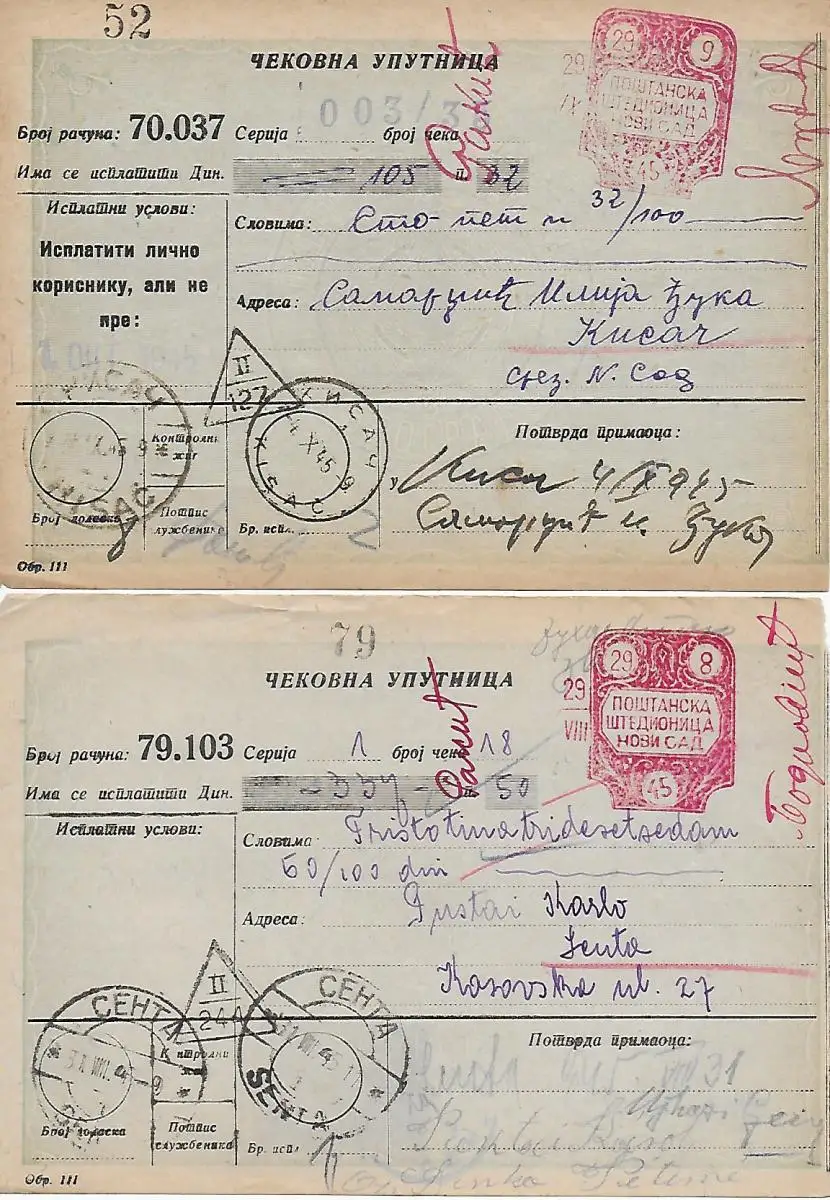 52
ЧЕКОВНА УПУТНИЦА
003/3
29 9
29
ПОШТАНСКА
ШТЕДИОНИЦА
НОВИ САД
45
Број рачуна: 70.037 Серија број чека
Има се исплатити Дин. 105 п. 32
Исплатни услови:
Исплатити лично
кориснику, али не
пре:
Словима: Сто пет и 32/100
Адреса: Самарџић Илија Ђука
Кисач
срез. Н. Сад
II
127
КИСАЧ
X 45 9
KISAČ
КИСАЧ
4 X 45 9
KISAČ
Контролни
жиг
Потврда примаоца:
у Кисач 4/X 945
Самарџић И. Ђука
Број доласка
Потпис
службенике
Бр. испл.
Обр. 111
79
ЧЕКОВНА УПУТНИЦА
29 8
29
VIII
ПОШТАНСКА
ШТЕДИОНИЦА
НОВИ САД
45
Број рачуна: 79.103 Серија 1 број чека 18
Има се исплатити Дин. 337 п. 50
Исплатни услови:
Словима Tristotinatridesetsedam
50/100 din
Адреса: Pustai Karlo
Senta
Kosovska ul. 27
II
244
СЕНТА
31 VIII. 45
9
СЕНТА
31 VIII 45
SENTA
Контролни
жиг
Потврда примаоца:
Senta VIII 31
Број доласка
Потпис
службеника
Бр. испл
Обр. 111